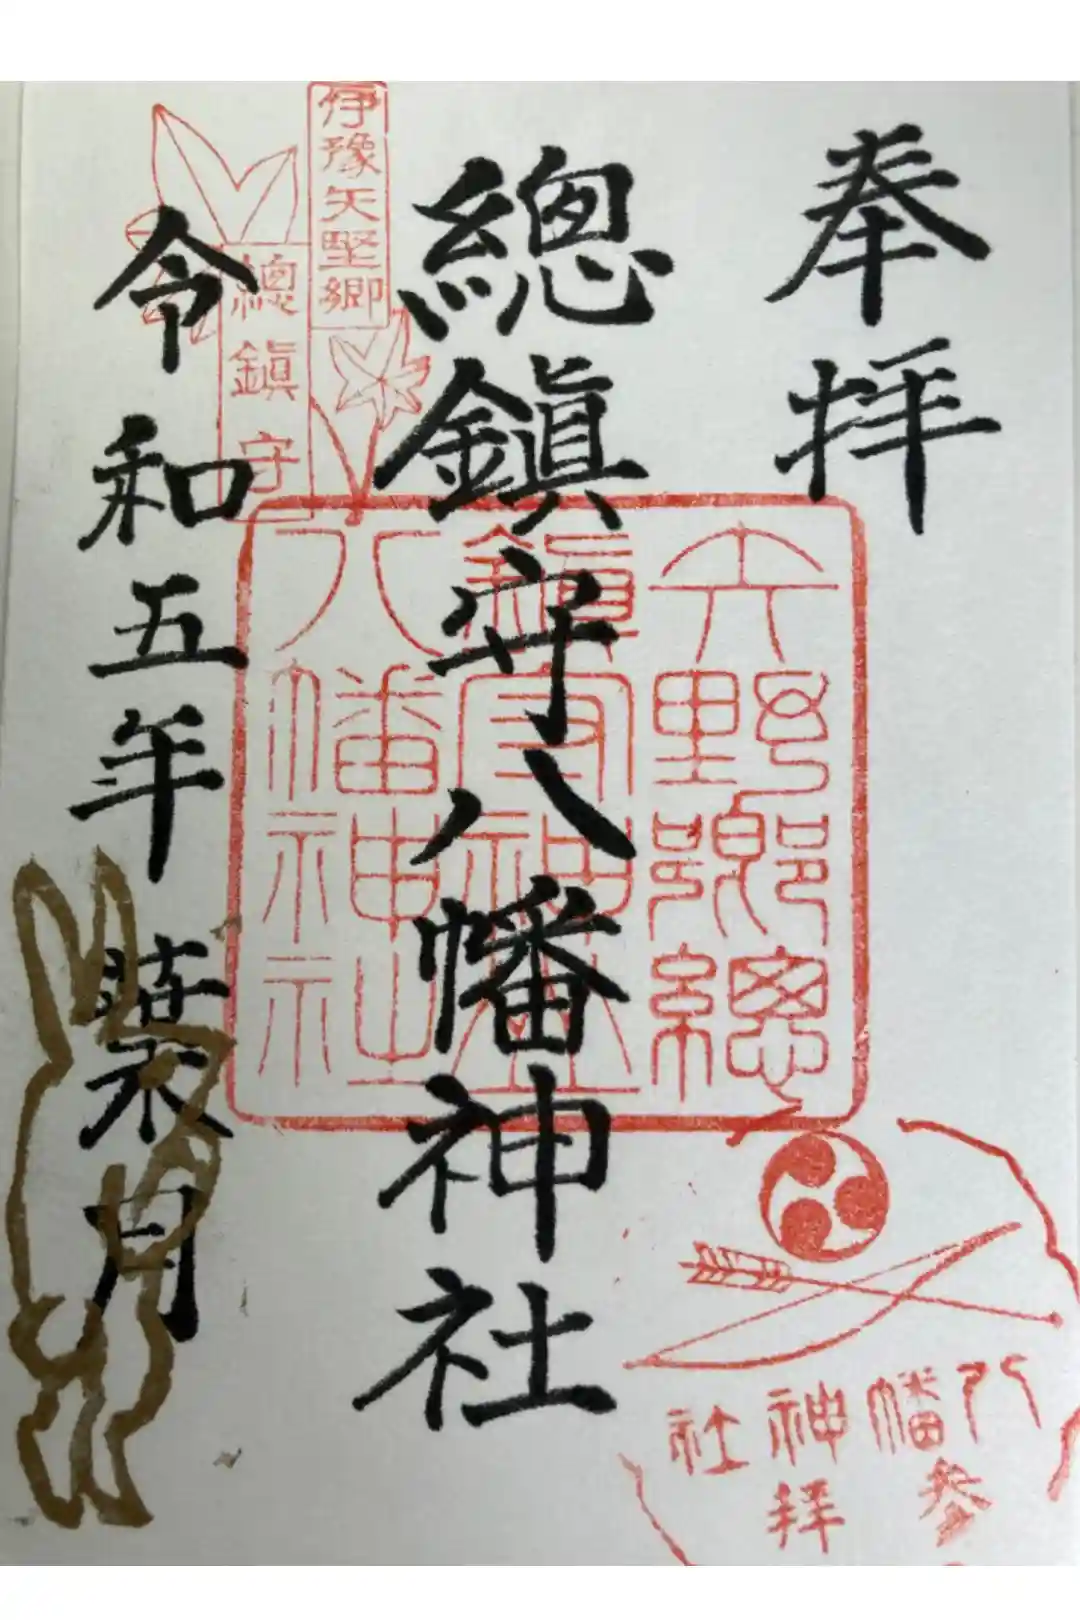 奉拝
總鎮守八幡神社
令和五年葉月
伊豫矢野郷
總鎮守
矢野郷總
鎮守神
八幡神社
八幡神社
参拝